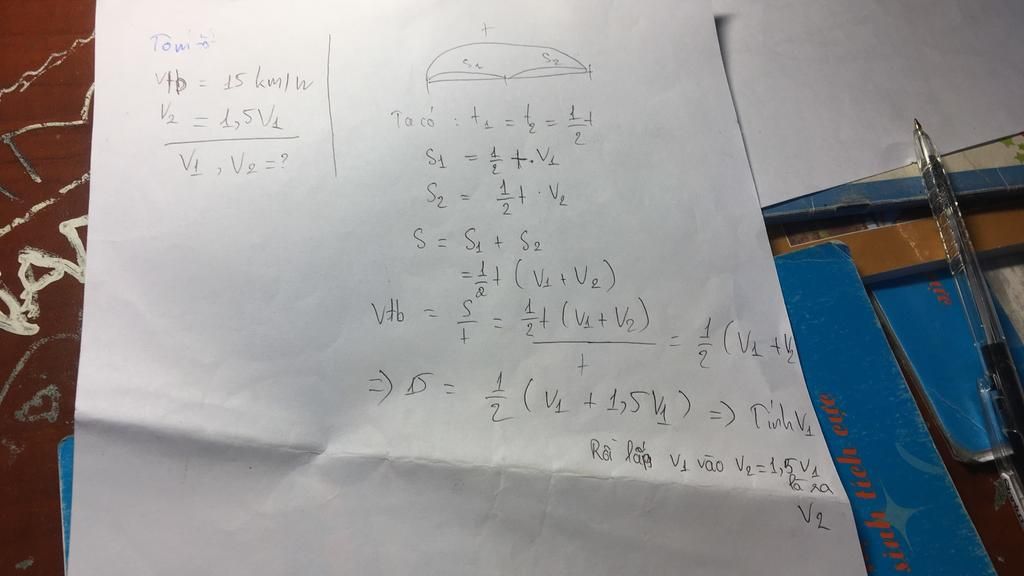 Tóm tắt
Vtb = 15 km/h
V2 = 1,5V1
V1, V2 = ?
t
S1 S2
Ta có : t1 = t2 = 1/2 t
S1 = 1/2 t . V1
S2 = 1/2 t . V2
S = S1 + S2
= 1/2 t (V1 + V2)
Vtb = S/t = 1/2 t (V1 + V2) / t = 1/2 (V1 + V2
=> 15 = 1/2 (V1 + 1,5V1) => Tính V1
Rồi lắp V1 vào V2 = 1,5V1
là ra
V2
sinh tích cực